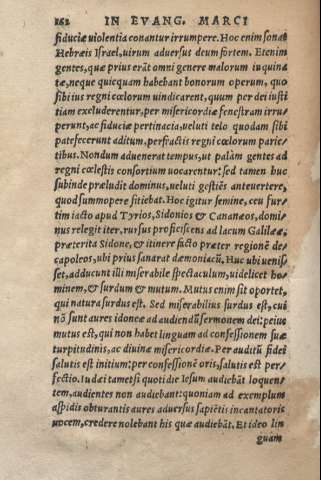 262 IN EVANG. MARCI
fiduciæ uiolentia conantur irrumpere. Hoc enim sonat
Hebræis Israel, uirum aduersus deum fortem. Etenim
gentes, quæ prius erāt omni genere malorum inquina
tæ, neque quicquam habebant bonorum operum, quo
sibi ius regni cœlorum uindicarent, quum per dei iusti
tiam excluderentur, per misericordiæ fenestram irru/
perunt, ac fiduciæ pertinacia, ueluti telo quodam sibi
patefecerunt aditum, perfractis regni cœlorum parie/
tibus. Nondum aduenerat tempus, ut palàm gentes ad
regni cœlestis consortium uocarentur: sed tamen huc
subinde præludit dominus, ueluti gestiẽs anteuertere,
quod summopere sitiebat. Hoc igitur semine, ceu fur/
tim iacto apud Tyrios, Sidonios & Cananæos, domi/
nus relegit iter, rursus proficiscens ad lacum Galilææ,
præterita Sidone, & itinere facto præter regionẽ de/
capoleos, ubi prius sanarat dæmoniacū. Huc ubi uenis/
set, adducunt illi miserabile spectaculum, uidelicet ho/
minem, & surdum & mutum. Mutus enim sit oportet,
qui natura surdus est. Sed miserabilius surdus est, cui
nō sunt aures idoneæ ad audiendū sermonem dei: peius
mutus est, qui non habet linguam ad confessionem suæ
turpitudinis, ac diuinæ misericordiæ. Per auditū fidei
salutis est initium: per confessionẽ oris, salutis est per/
fectio. Iudæi tametsi quotidie Iesum audiebāt loquen/
tem, audientes non audiebant: quoniam ad exemplum
aspidis obturantis aures aduersus sapiẽtis incantatoris
uocem, credere nolebant his quæ audiebāt. Et ideo lin
guam